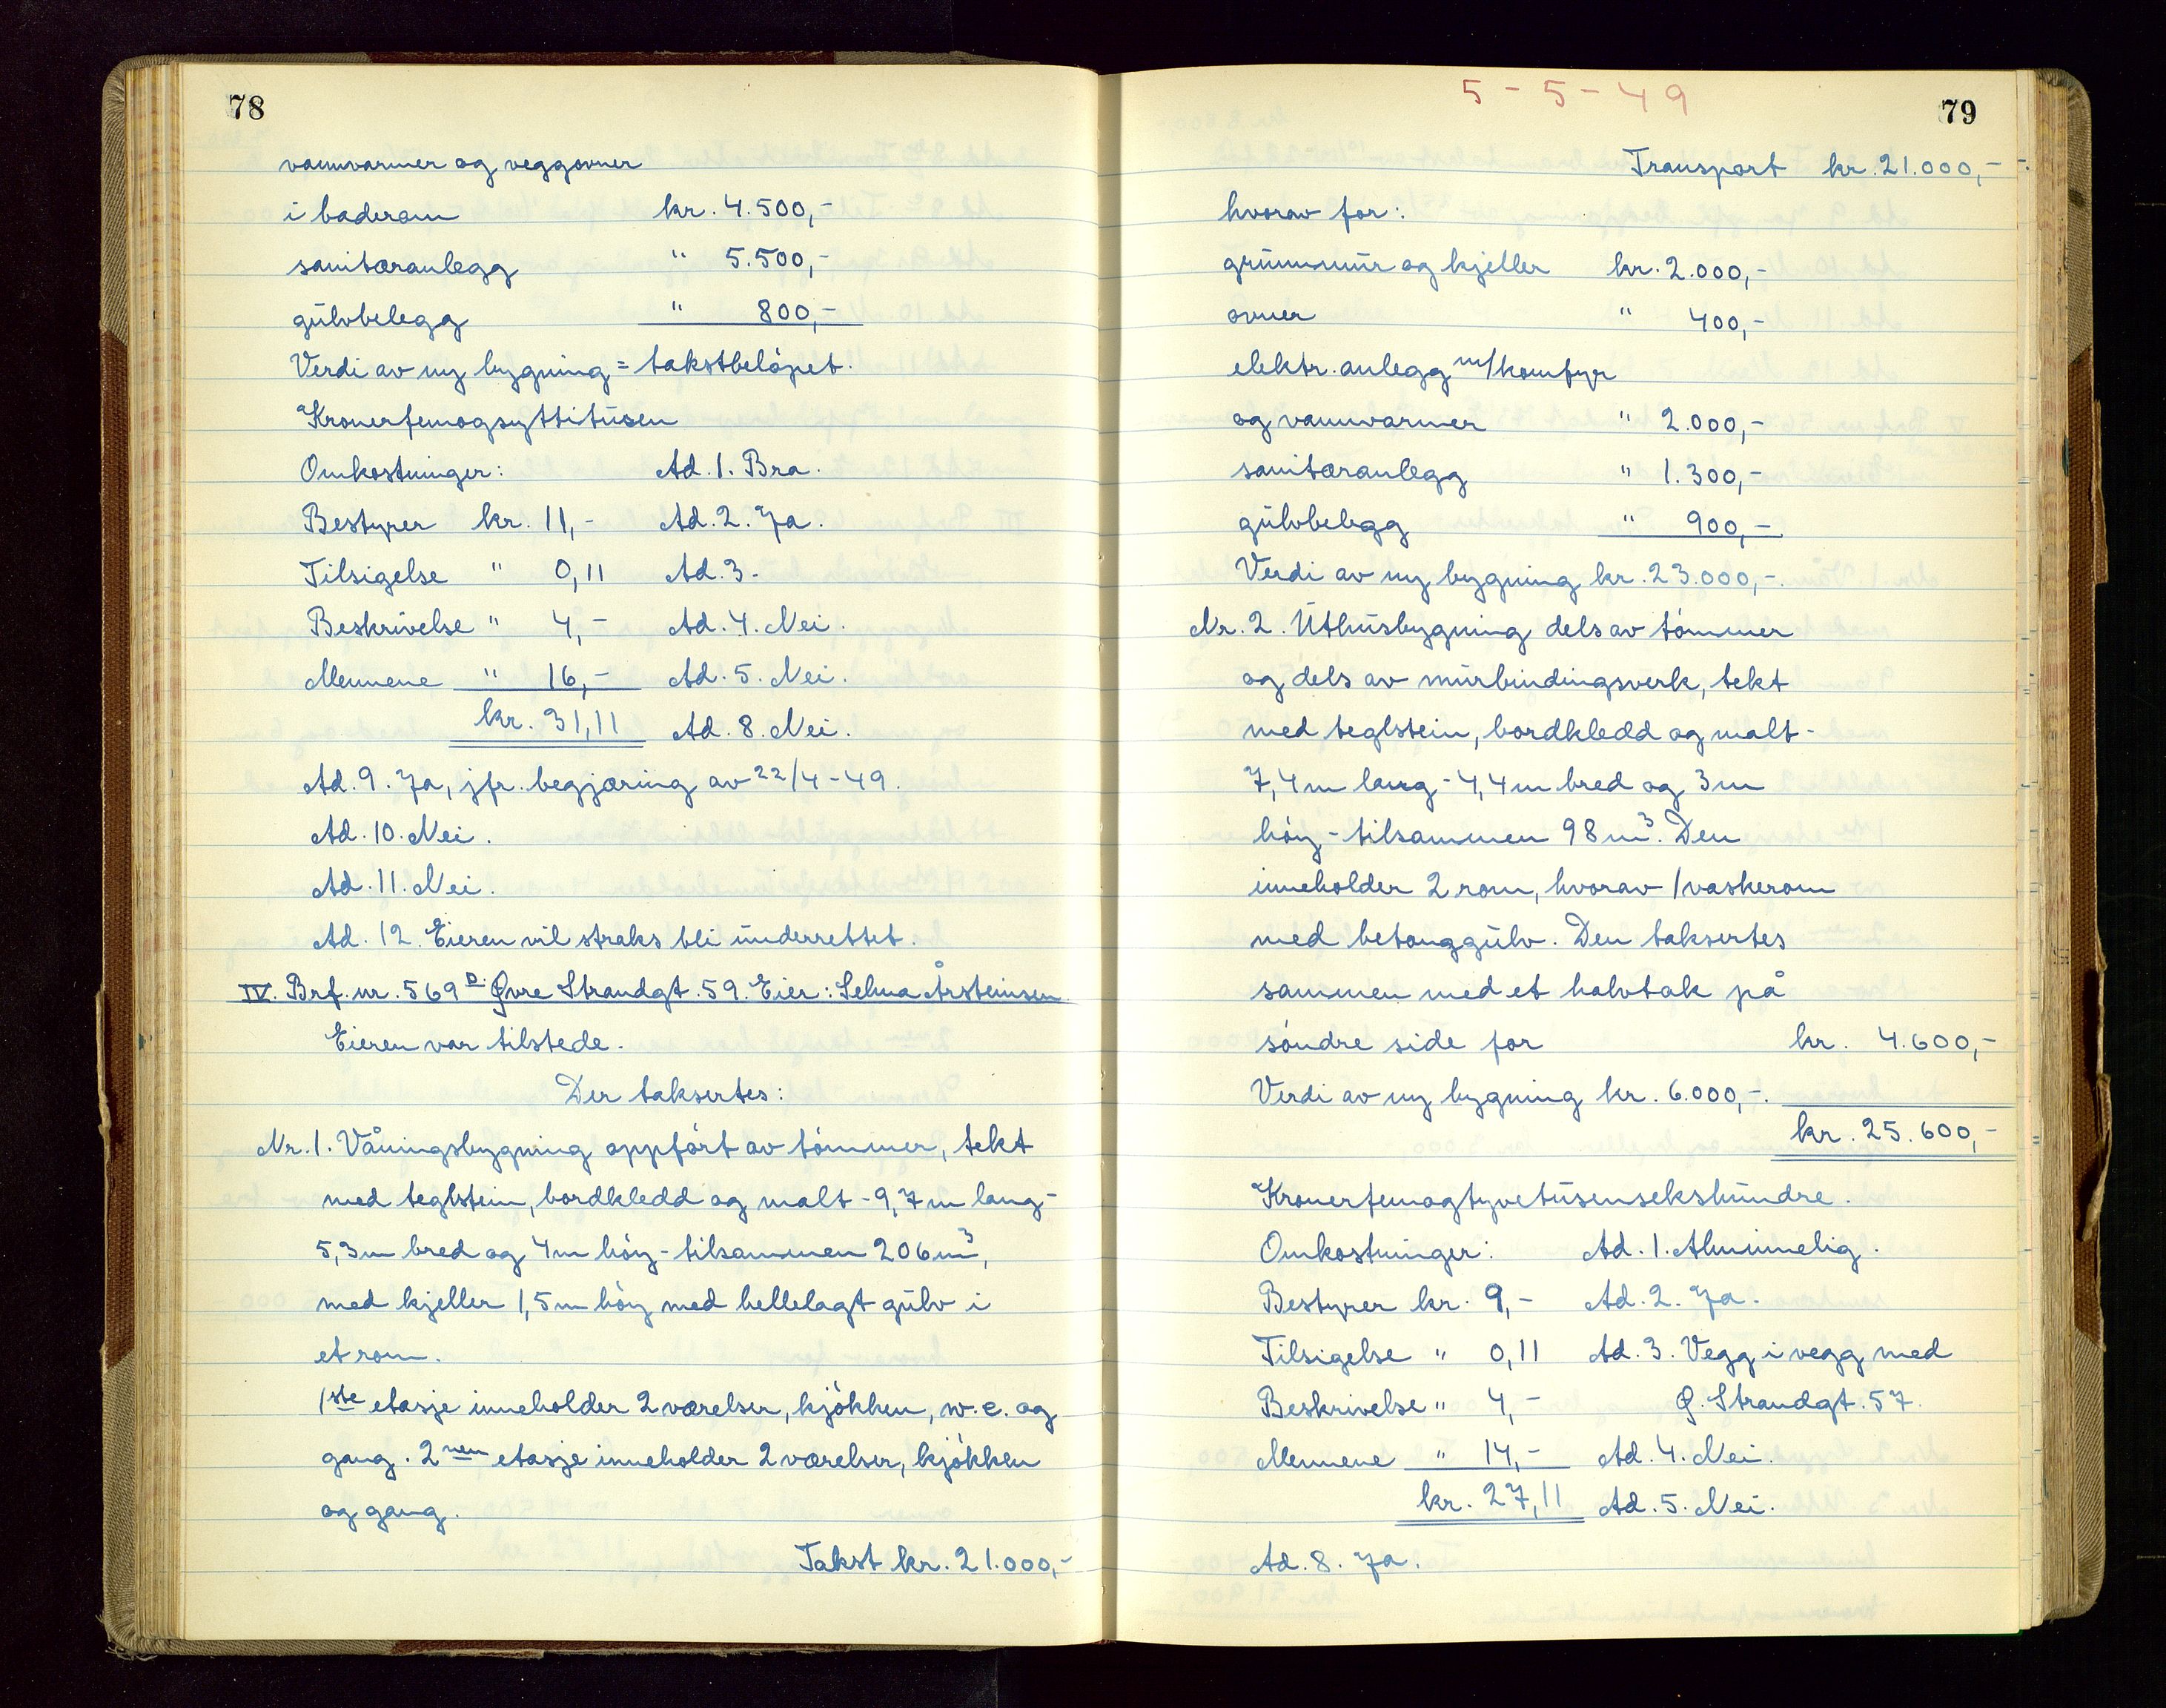 78
vannvarmer og veggovner
i baderom kr. 4.500,-
sanitæranlegg " 5.500,-
gulvbelegg " 800,-
Verdi av ny bygning = takstbeløpet.
Kronerfemogsyttitusen
Omkostninger: Ad. 1. Bra.
Bestyrer kr. 11,- Ad. 2. Ja.
Tilsigelse " 0,11 Ad. 3. -
Beskrivelse " 4,- Ad. 4. Nei.
Mennene " 16,- Ad. 5. Nei.
kr. 31,11 Ad. 8. Nei.
Ad. 9. Ja, jfr. begjæring av 22/4-49.
Ad. 10. Nei.
Ad. 11. Nei.
Ad. 12. Eieren vil straks bli underrettet.
IV. Brf. nr. 569 D. Øvre Strandgt. 59. Eier: Selma Årsteinsen.
Eieren var tilstede.
Der taksertes:
Nr. 1. Våningsbygning oppført av tømmer, tekt
med teglstein, bordkledd og malt - 9,7 m lang -
5,3 m bred og 4 m høy - tilsammen 206 m³,
med kjeller 1,5 m høy med hellelagt gulv i
et rom.
1ste etasje inneholder 2 værelser, kjøkken, w.c. og
gang. 2nen etasje inneholder 2 værelser, kjøkken
og gang.
Takst kr. 21.000,-
5-5-49
79
Transport kr. 21.000,-
hvorav for:
grunnmur og kjeller kr. 2.000,-
ovner " 400,-
elektr. anlegg m/komfyr
og vannvarmer " 2.000,-
sanitæranlegg " 1.300,-
gulvbelegg " 900,-
Verdi av ny bygning kr. 23.000,-.
Nr. 2. Uthusbygning dels av tømmer
og dels av murbindingsverk, tekt
med teglstein, bordkledd og malt -
7,4 m lang - 4,4 m bred og 3 m
høy - tilsammen 98 m³. Den
inneholder 2 rom, hvorav 1 vaskerom
med betonggulv. Den taksertes
sammen med et halvtak på
søndre side for kr. 4.600,-
Verdi av ny bygning kr. 6.000,-.
kr. 25.600,-
Kronerfemogtyvetusensekshundre.
Omkostninger: Ad. 1. Alminnelig.
Bestyrer kr. 9,- Ad. 2. Ja.
Tilsigelse " 0,11 Ad. 3. Vegg i vegg med
Beskrivelse " 4,- Ø. Strandgt. 57.
Mennene " 14,- Ad. 4. Nei.
kr. 27,11 Ad. 5. Nei.
Ad. 8. Ja.